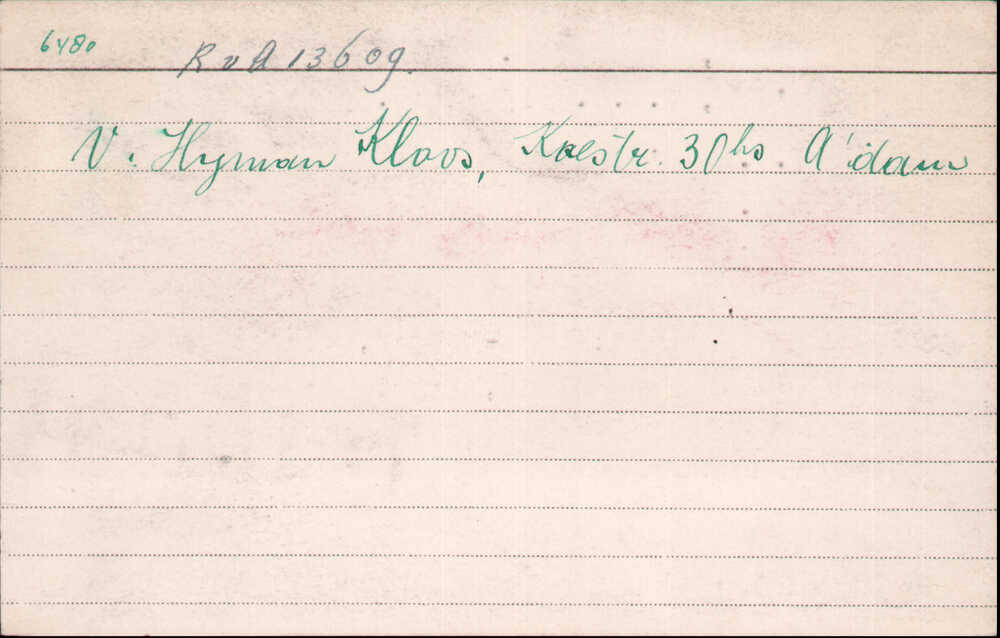 6480
RvA 13609.
V. Hyman Kloos, Kaestr. 30hs A'dam